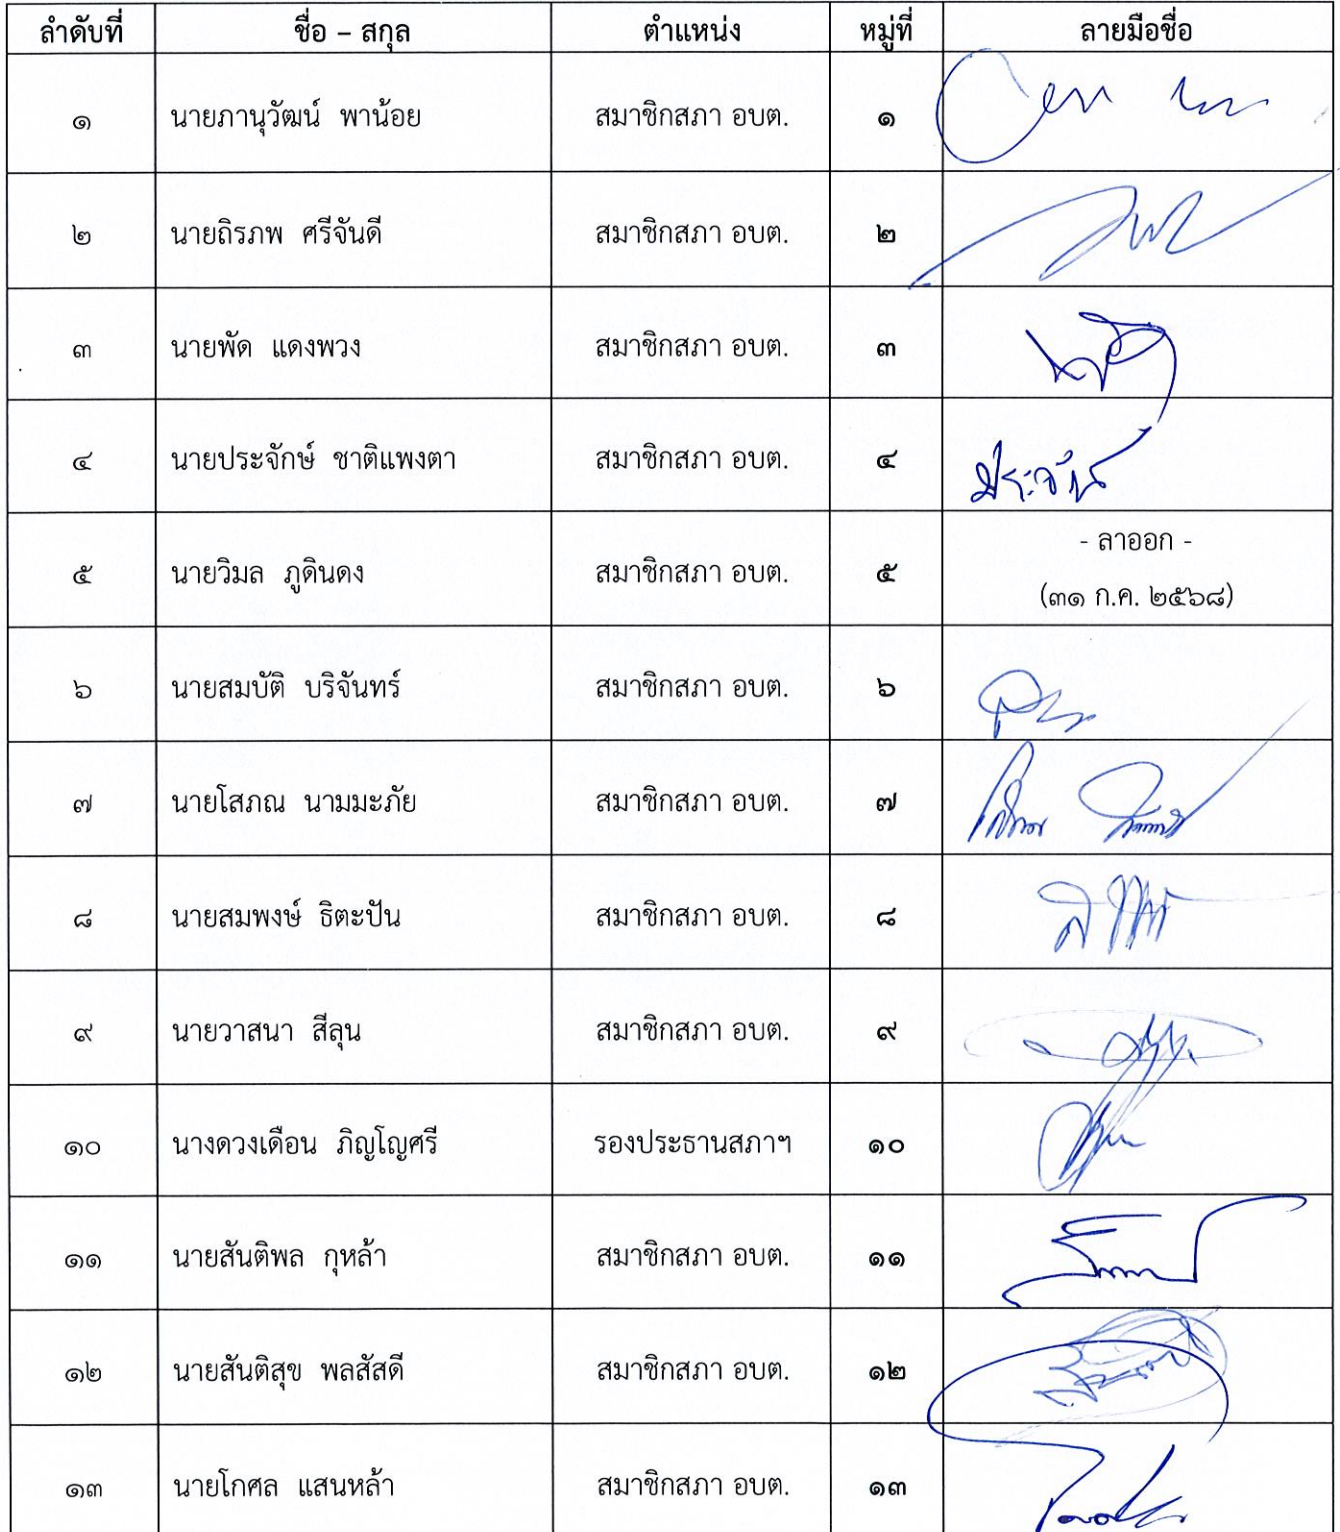 ลำดับที่ ชื่อ – สกุล ตำแหน่ง หมู่ที่ ลายมือชื่อ
๑ นายภานุวัฒน์ พาน้อย สมาชิกสภา อบต. ๑
๒ นายถิรภพ ศรีจันดี สมาชิกสภา อบต. ๒
๓ นายพัด แดงพวง สมาชิกสภา อบต. ๓
๔ นายประจักษ์ ชาติแพงตา สมาชิกสภา อบต. ๔
- ลาออก -
๕ นายวิมล ภูดินดง สมาชิกสภา อบต. ๕
(๓๑ ก.ค. ๒๕๖๘)
๖ นายสมบัติ บริจันทร์ สมาชิกสภา อบต. ๖
๗ นายโสภณ นามมะภัย สมาชิกสภา อบต. ๗
๘ นายสมพงษ์ ธิตะปัน สมาชิกสภา อบต. ๘
๙ นายวาสนา สีลุน สมาชิกสภา อบต. ๙
๑๐ นางดวงเดือน ภิญโญศรี รองประธานสภาฯ ๑๐
๑๑ นายสันติพล กุหล้า สมาชิกสภา อบต. ๑๑
๑๒ นายสันติสุข พลสัสดี สมาชิกสภา อบต. ๑๒
๑๓ นายโกศล แสนหล้า สมาชิกสภา อบต. ๑๓